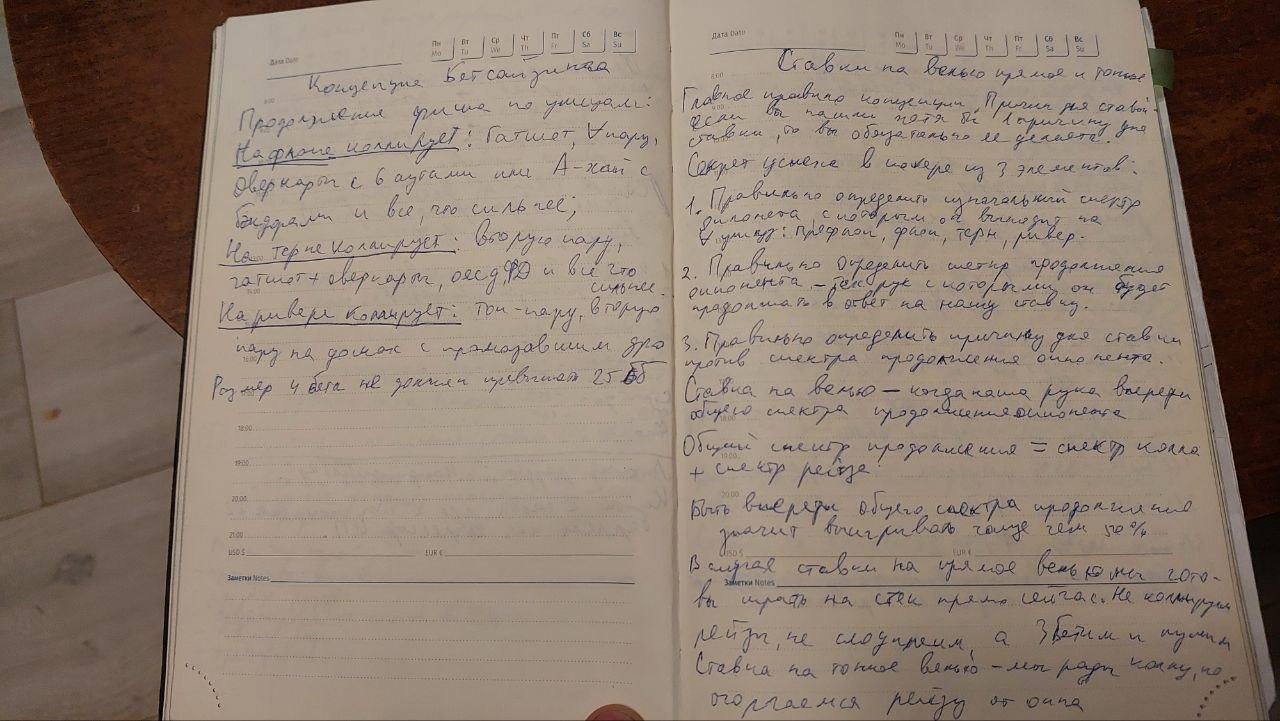 Дата Date
Пн Вт Ср Чт Пт Сб Вс
Mo Tu We Th Fr Sa Su
Концепция Бетсайзинга
8:00
Продолжение фиша по улицам:
На флопе коллирует: Гатшот, ∀ пару,
Оверкарты с 6 аутами или А-хай с
бэкдорами и все, что сильнее;
На терне коллирует: вторую пару,
гатшот + оверкарты, оесд, ФД и все что
сильнее.
На ривере коллирует: топ-пару, вторую
пару на досках с промазавшим дро
16:00
Размер 4 бета не должен превышать 25 ББ
18:00
19:00
20:00
21:00
USD $ EUR €
Заметки Notes
Дата Date
Пн Вт Ср Чт Пт Сб Вс
Mo Tu We Th Fr Sa Su
Ставки на велью прямое и тонкое
8:00
Главное правило концепции Причин для ставок:
если вы нашли хотя бы 1 причину для
ставки, то вы обязательно ее делаете.
Секрет успеха в покере из 3 элементов:
1. Правильно определить изначальный спектр
оппонента, с которым он выходит на
∀ улицу: префлоп, флоп, терн, ривер.
2. Правильно определить спектр продолжения
оппонента – рук с которыми он будет
продолжать в ответ на нашу ставку.
3. Правильно определить причину для ставки
против спектра продолжения оппонента.
Ставка на велью – когда наша рука впереди
общего спектра продолжения оппонента
18:00
Общий спектр продолжения = спектр колла
19:00
+ спектр рейза
20:00
Быть впереди общего спектра продолжение
значит выигривать чаще чем 50%
USD $ EUR €
В случая ставки на прямое велью мы гото-
Заметки Notes
вы играть на стек прямо сейчас. Не коллируем
рейзы, не слоуплеим, а 3бетим и пушим
Ставка на тонкое велью – мы рады коллу, но
огорчаемся рейзу от оппа